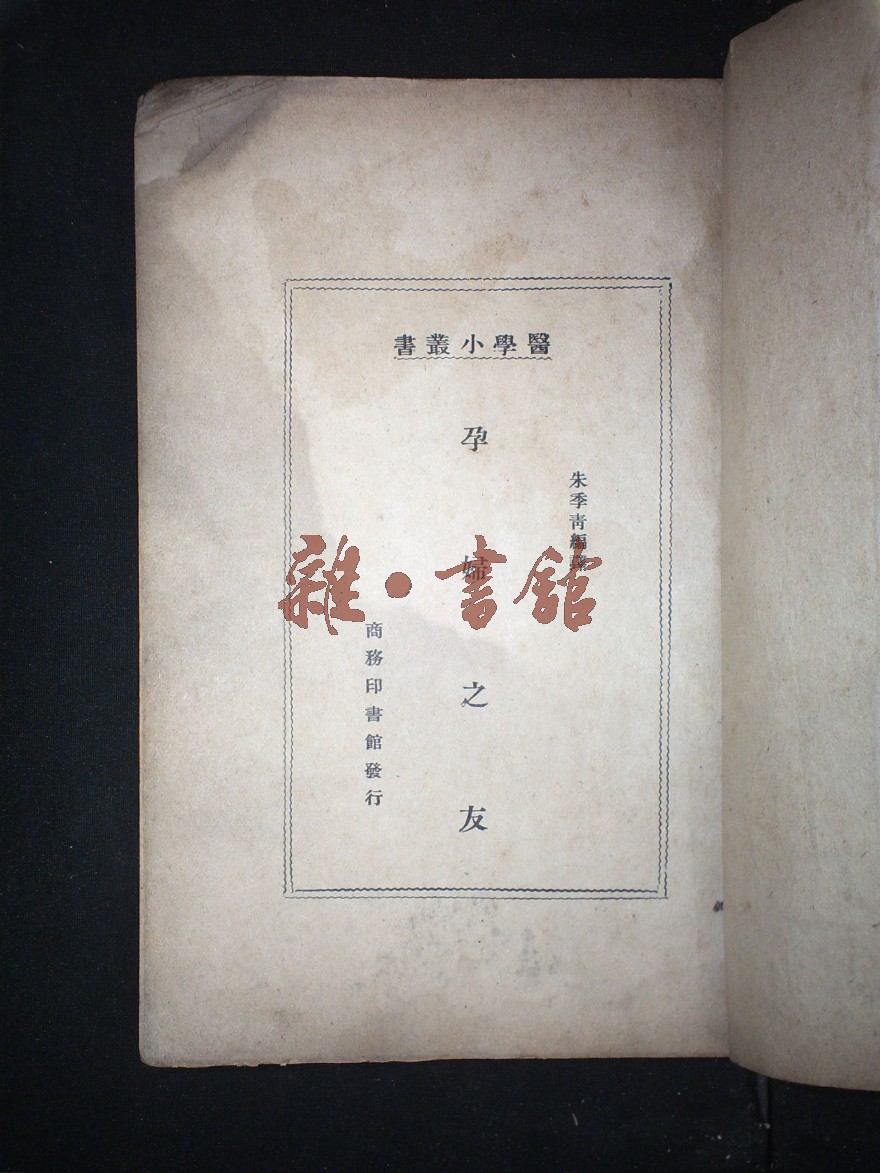 醫學小叢書
朱季青編譯
孕婦之友
商務印書館發行
雜·書館